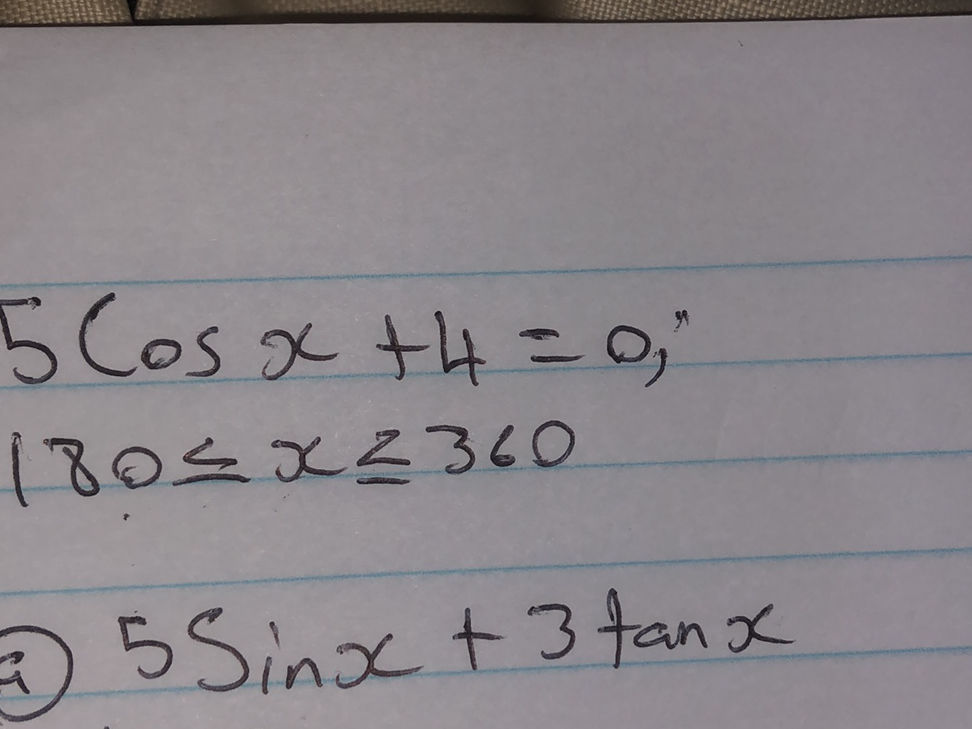 5 Cos x + 4 = 0,"
180 ≤ x ≤ 360
a) 5 Sin x + 3 tan x